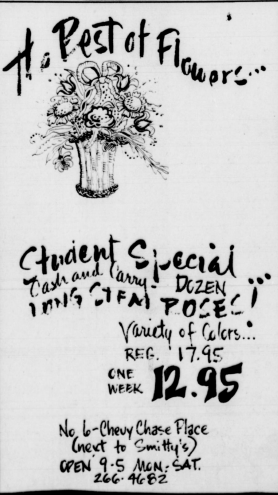 The Pest of Flowers...
Student Special
Cash and Carry! DOZEN
LONG STEM ROSES!...
Variety of Colors...
REG. 17.95
ONE WEEK 12.95
No. 6-Chevy Chase Place
(next to Smitty's)
OPEN 9-5 MON.-SAT.
266-4682